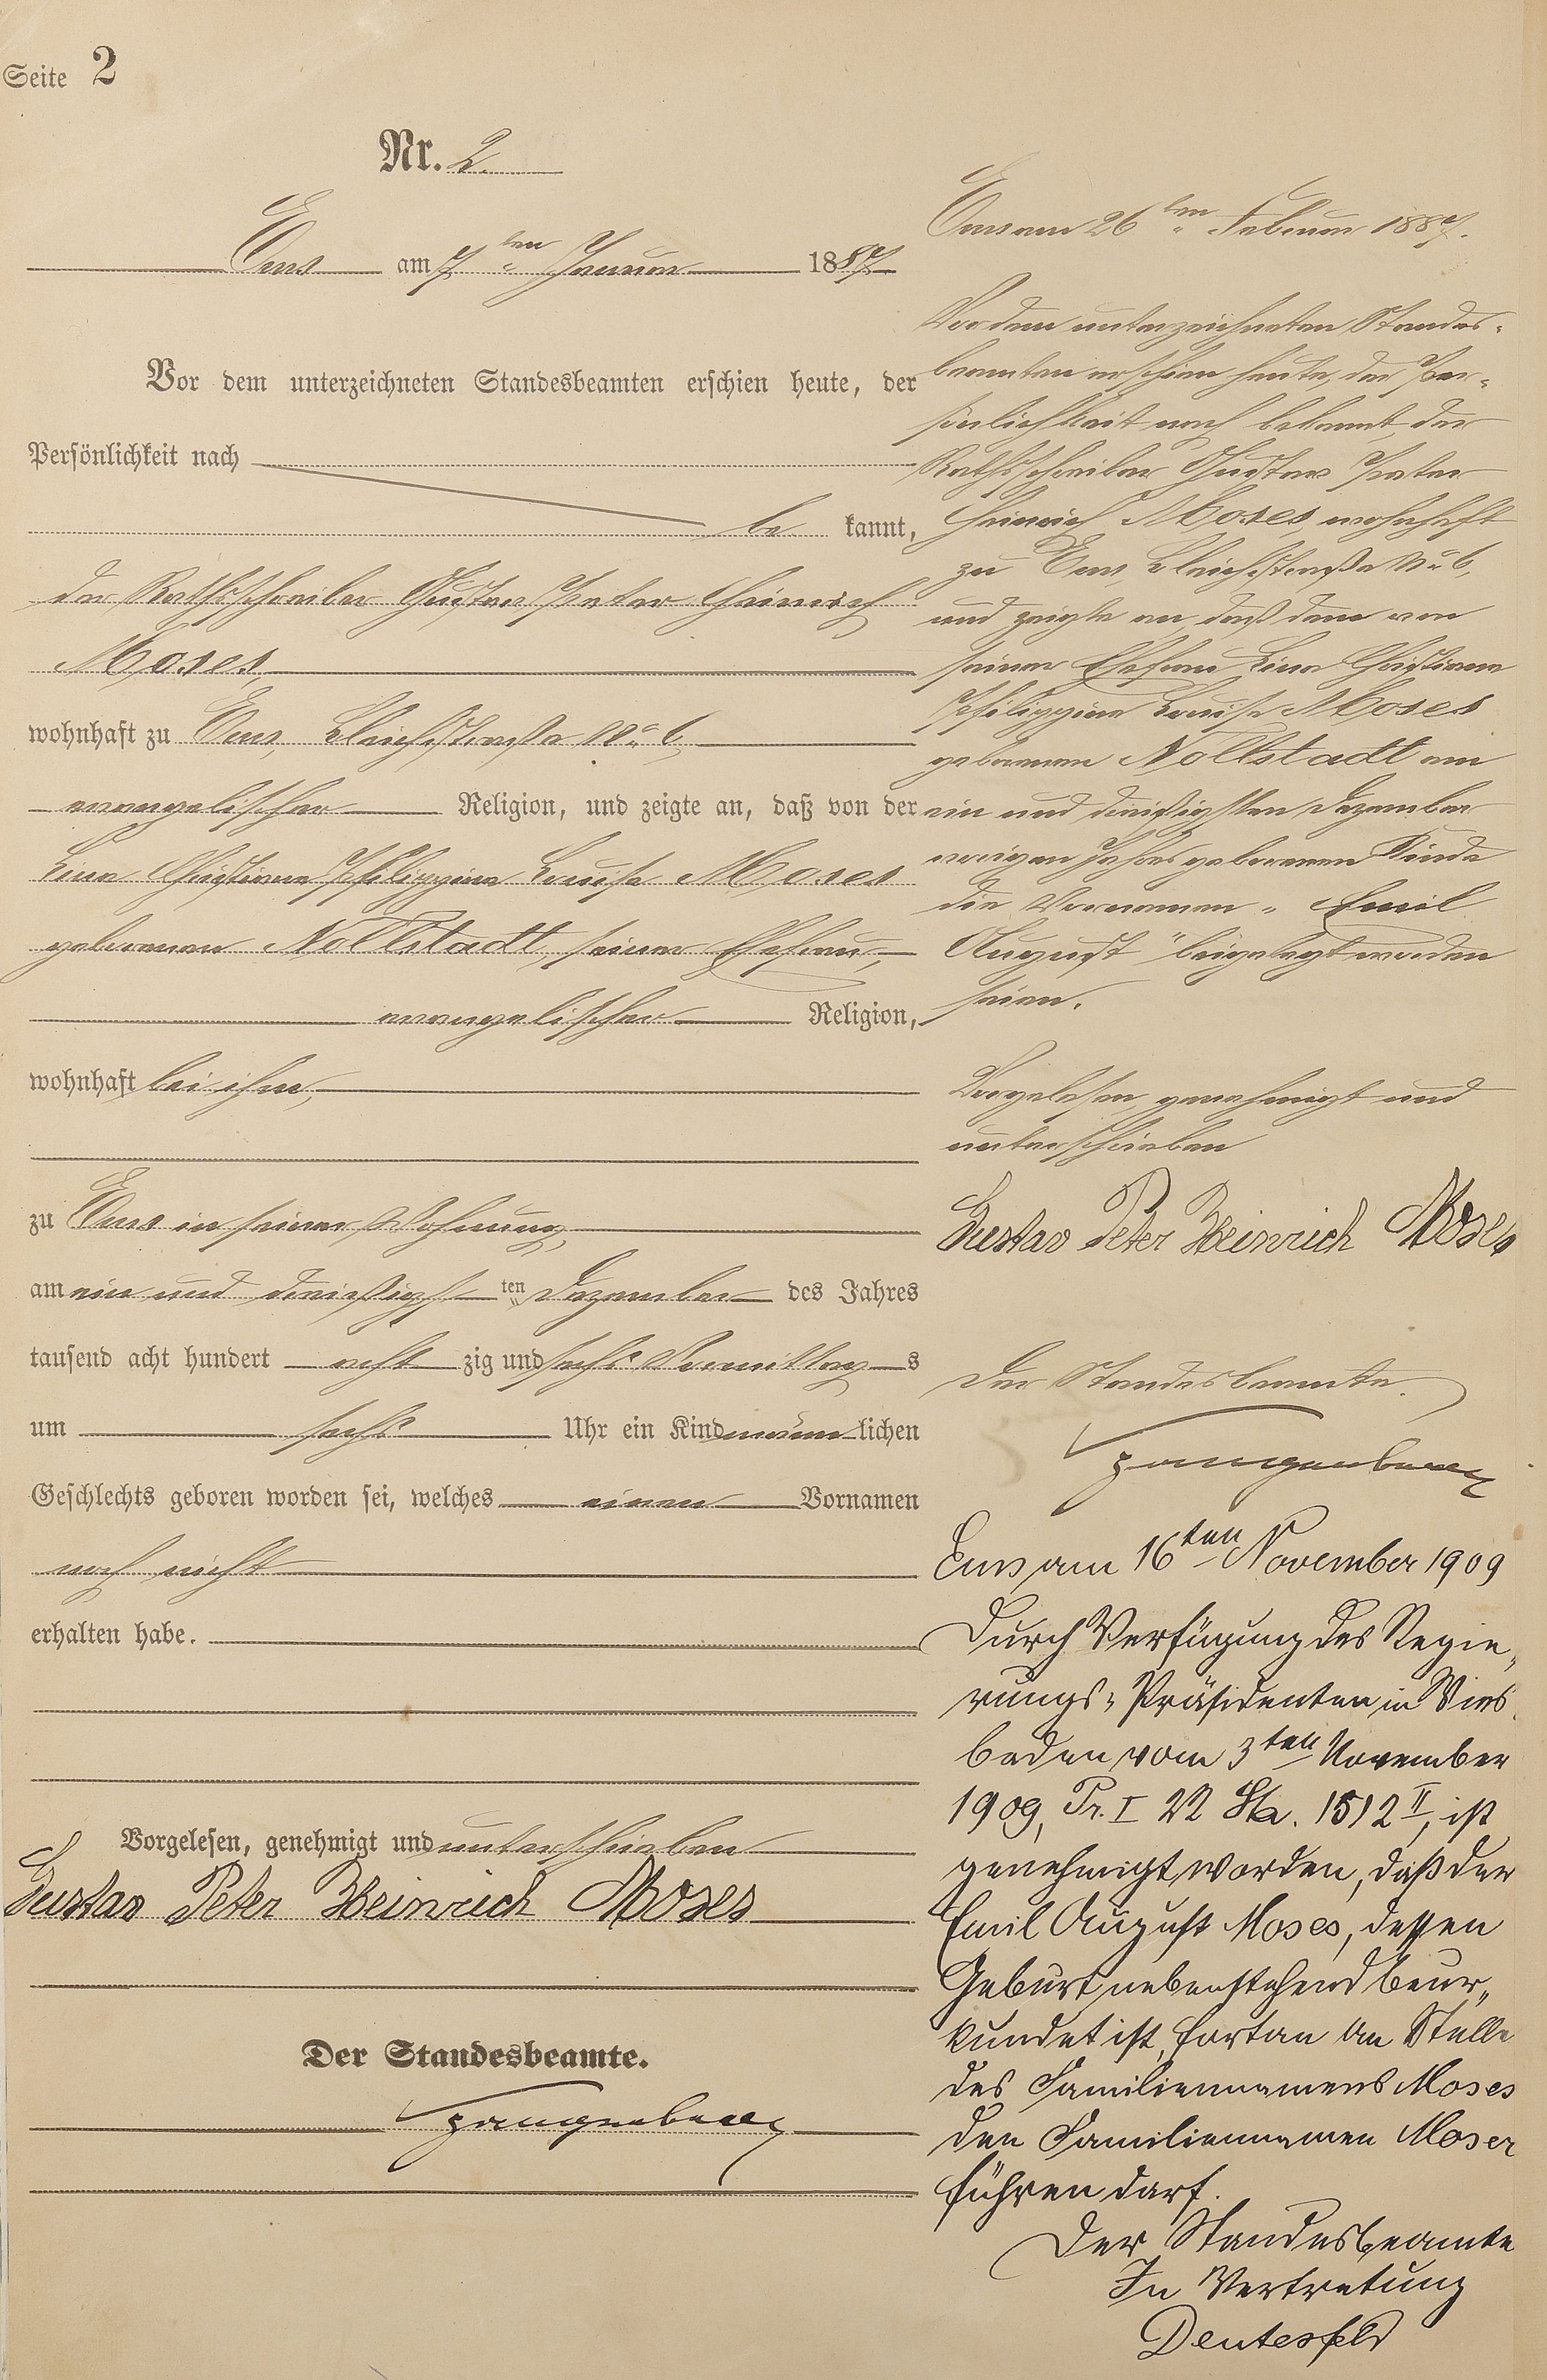 Seite 2
Nr. 2.
Ems am 7ten Januar 1887
Vor dem unterzeichneten Standesbeamten erschien heute, der
Persönlichkeit nach
be kannt,
der Rathsschreiber Gustav Peter Heinrich
Moses,
wohnhaft zu Ems, Bleichstraße No 6,
evangelischer Religion, und zeigte an, daß von der
Lina Christiane Philippine Louise Moses
geborenen Nollstadt, seiner Ehefrau,
evangelischer Religion,
wohnhaft bei ihm,
zu Ems in seiner Wohnung,
am ein und dreißigst ten Dezember des Jahres
tausend acht hundert acht zig und sechs Vormittag s
um sechs Uhr ein Kind männ lichen
Geschlechts geboren worden sei, welches einen Vornamen
noch nicht
erhalten habe.
Vorgelesen, genehmigt und unterschrieben
Gustav Peter Heinrich Moses
Der Standesbeamte.
Ems am 26ten Februar 1887.
Vor dem unterzeichneten Standes-
beamten erschien heute, der Per-
sönlichkeit nach bekannt, der
Rathsschreiber Gustav Peter
Heinrich Moses, wohnhaft
zu Ems, Bleichstraße No 6,
und zeigte an, daß dem von
seiner Ehefrau Lina Christiane
Philippine Louise Moses
geborenen Nollstadt am
ein und dreißigsten Dezember
vorigen Jahres geborenen Kinde
die Vornamen „Emil
August" beigelegt worden
seien.
Vorgelesen, genehmigt und
unterschrieben
Gustav Peter Heinrich Moses
Der Standesbeamte.
Ems am 16ten November 1909
Durch Verfügung des Regie-
rungs-Präsidenten in Wies-
baden vom 3ten November
1909, Pr. I 22 Sta. 1512 II, ist
genehmigt worden, daß der
Emil August Moses, dessen
Geburt nebenstehend beur-
kundet ist, fortan an Stelle
des Familiennamens Moses
den Familiennamen Moser
führen darf.
Der Standesbeamte
In Vertretung
Deutesfeld